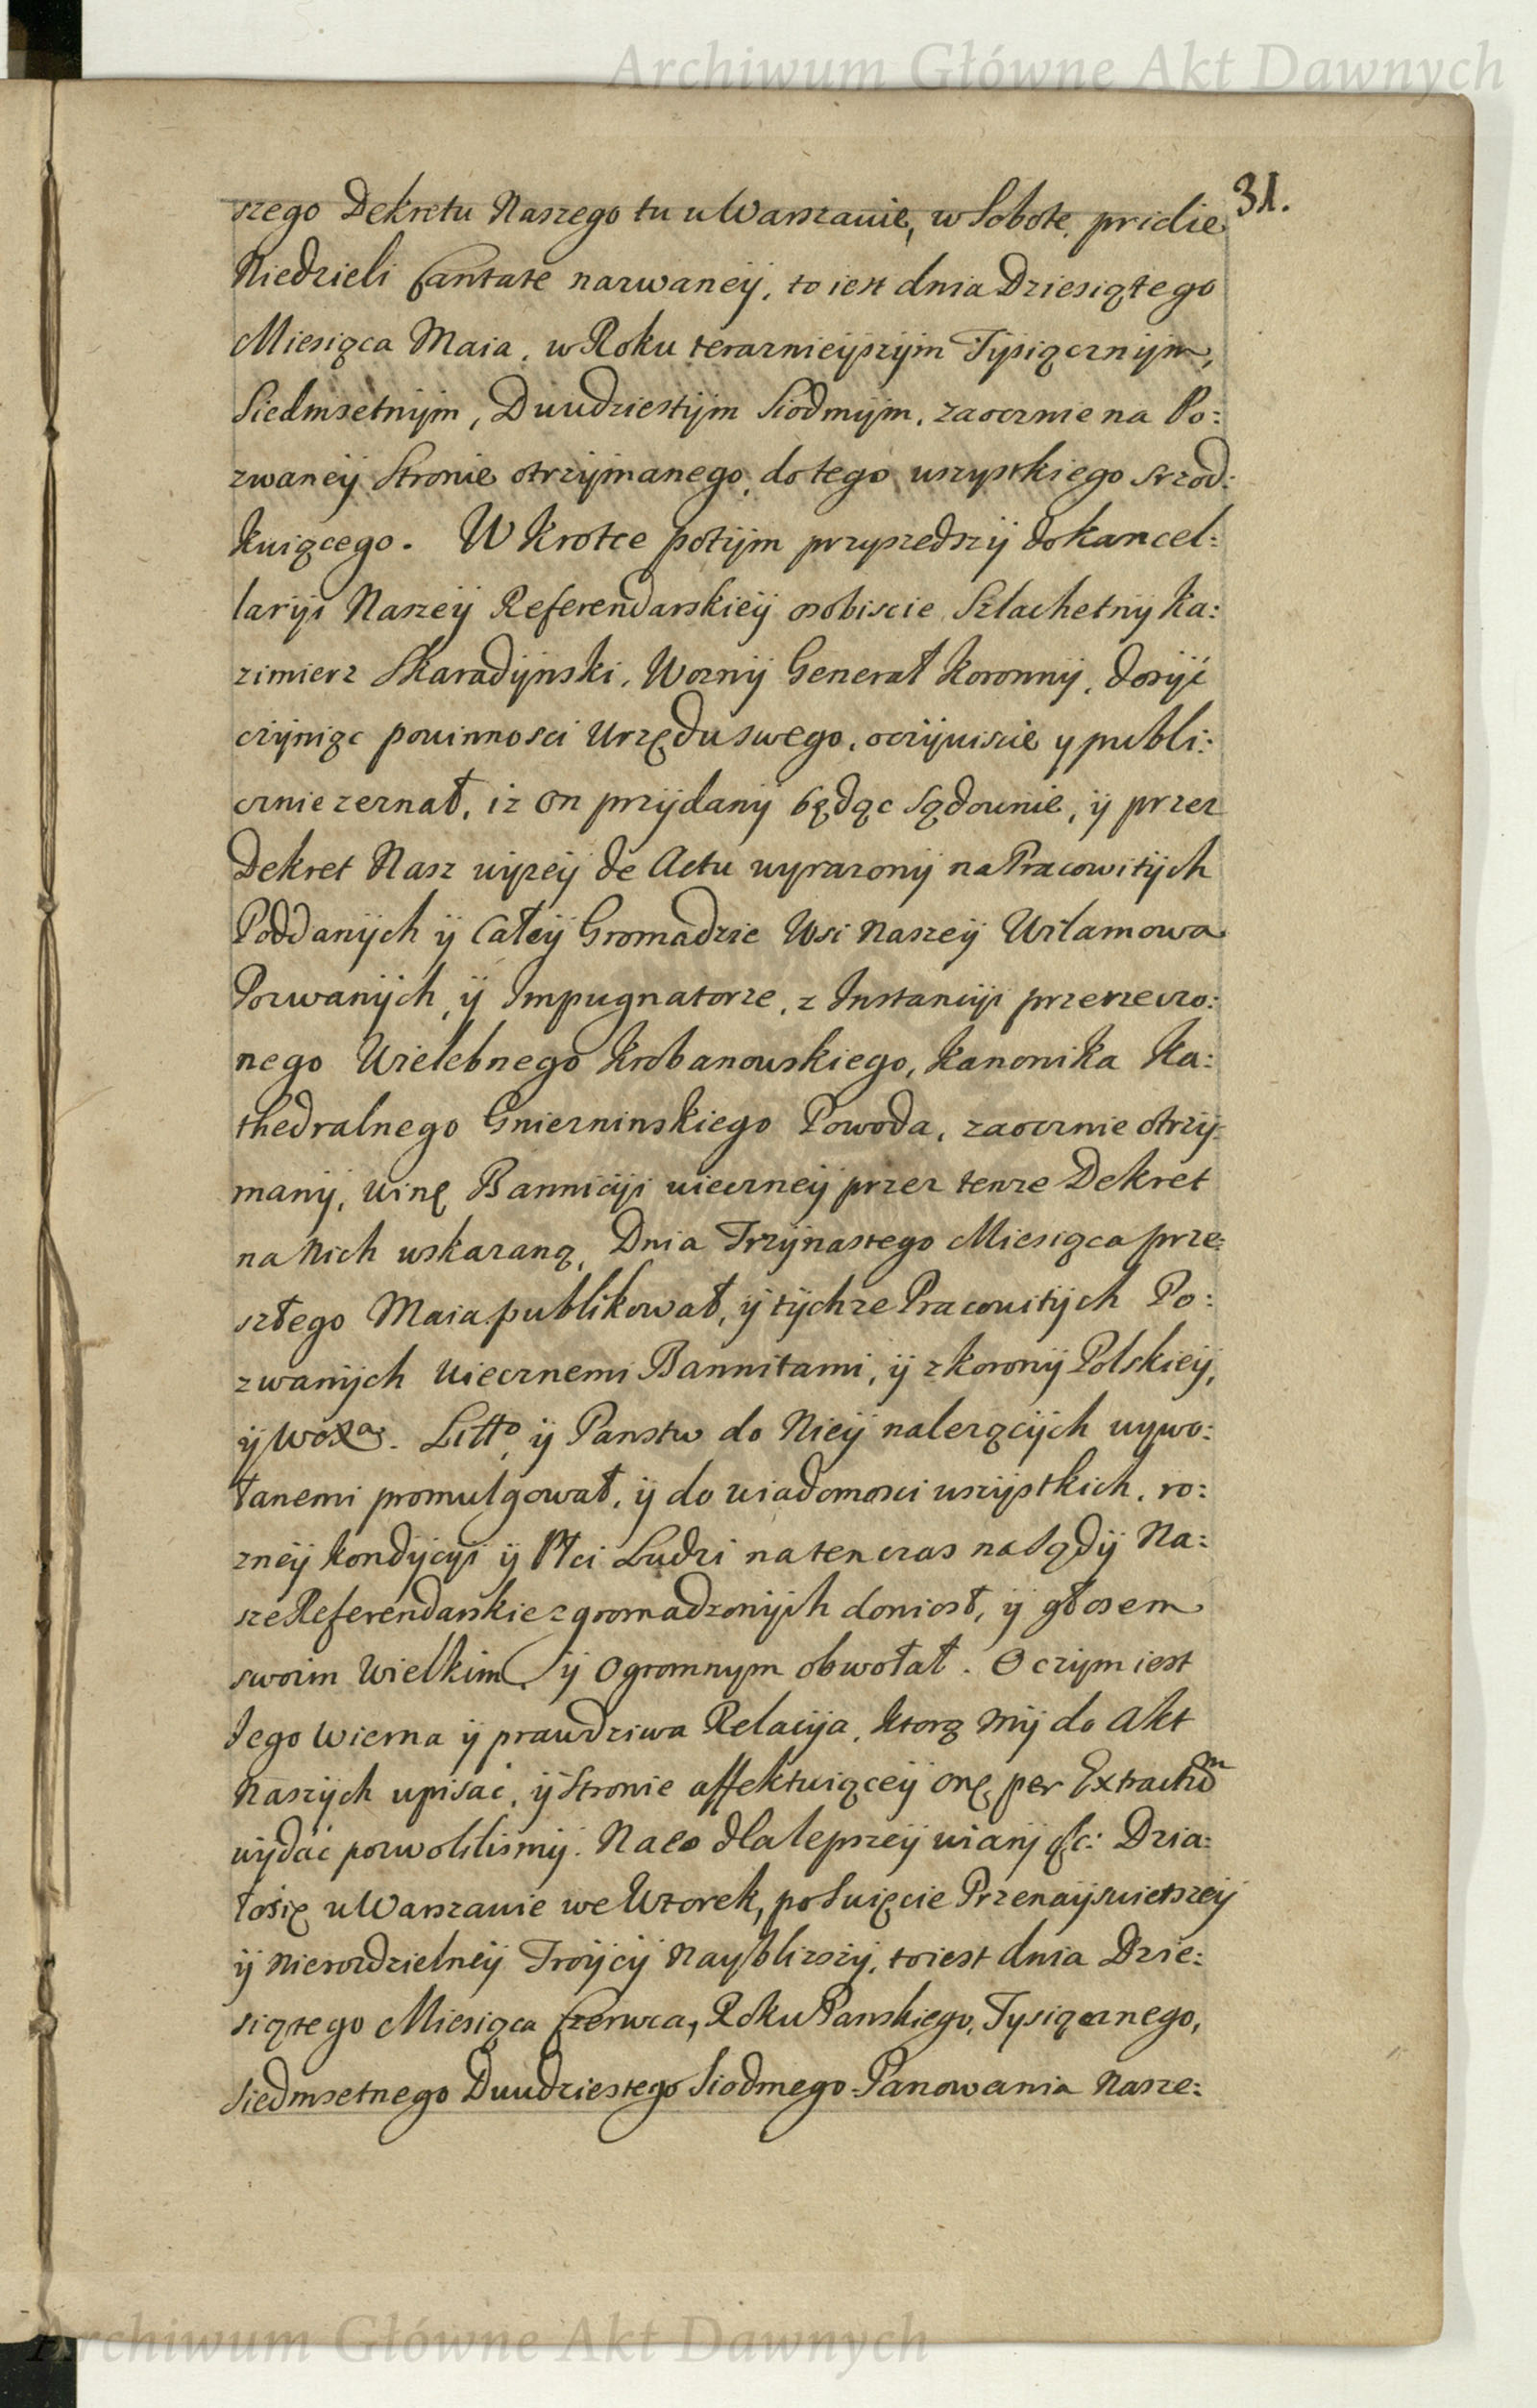 Archiwum Główne Akt Dawnych
31.
szego Dekretu Naszego tu w Warszawie, w Sobotę, pridie
Niedzieli Cantate nazwaneij, to iest dnia Dziesiątego
Miesiąca Maia, w Roku teraznieijszijm Tijsiącznijm,
Siedmsetnijm, Dwudziestijm Siodmijm, zaocznie na Po:
zwaneij Stronie otrzijmanego, do tego wszystkiego srzod:
kuiącego. W Krotce potijm przyszedszij do kancel:
lariji Naszeij Referendarskieij osobiscie Szlachetnij Ka:
zimierz Skaradijnski, Woznij Generał Koronnij, dosijć
czijniąc powinnosci Urzędu swego, oczijwiscie y publi:
cznie zeznał, iz on przijdanij będąc Sądownie, ij przez
Dekret Nasz wijzeij de Actu wyrazonij na Pracowitijch
Poddanijch ij Całeij Gromadzie Wsi Naszeij Wilamowa
Pozwanijch, ij Impugnatorze, z Instanciji przerzeczo:
nego Wielebnego Krobanowskiego, Kanonika Ka:
thedralnego Gniezninskiego Powoda, zaocznie otrzij:
manij, winę Banniciji wieczneij przez tenze Dekret
na Nich wskazaną, Dnia Trzijnastego Miesiąca prze:
szłego Maia publikował, ij tijchze Pracowitijch Po:
zwanijch Wiecznemi Bannitami, ij z Koronij Polskieij,
ij Litto ij Panstw do Nieij nalezącijch wywo:
łanemi promulgował, ij do wiadomosci wszijstkich, ro:
zneij kondijcyi ij Płci Ludzi na ten czas na Sądij Na:
sze Referendarskie zgromadzonijch doniosł, ij głosem
swoim Wielkim ij Ogromnym obwołał. O czijm iest
Iego wierna ij prawdziwa Relacija, ktorą mij do Akt
Naszijch wpisać, ij Stronie affektuiąceij onę per Extractum
wijdać pozwolilismij. Na co dla lepszeij wiarij &c: Dzia:
łosię w Warszawie we Wtorek, po Swięcie Przenaijswietszeij
ij Nierozdzielneij Troijcij Naybliszij, to iest dnia Dzie:
siątego Miesiąca Czerwca, Roku Panskiego, Tysiącznego,
Siedmsetnego Dwudziestego Siodmego Panowania Nasze:
Archiwum Główne Akt Dawnych